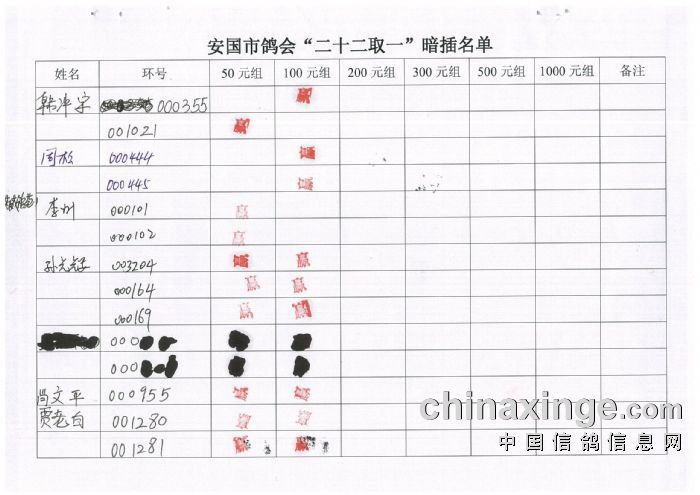 安国市鸽会“二十二取一”暗插名单
姓名 环号 50 元组 100 元组 200 元组 300 元组 500 元组 1000 元组 备注
韩冲宇 000355 赢
001021 赢
周松 000444 赢
000445 赢
李川 000101 赢
000102 赢
003204 赢 赢
000164 赢 赢
000169 赢 赢
000
000
尚文平 000955 赢 赢
贾老白 001280 赢 赢
001281 赢 赢
chinaxinge.com
中国信鸽信息网